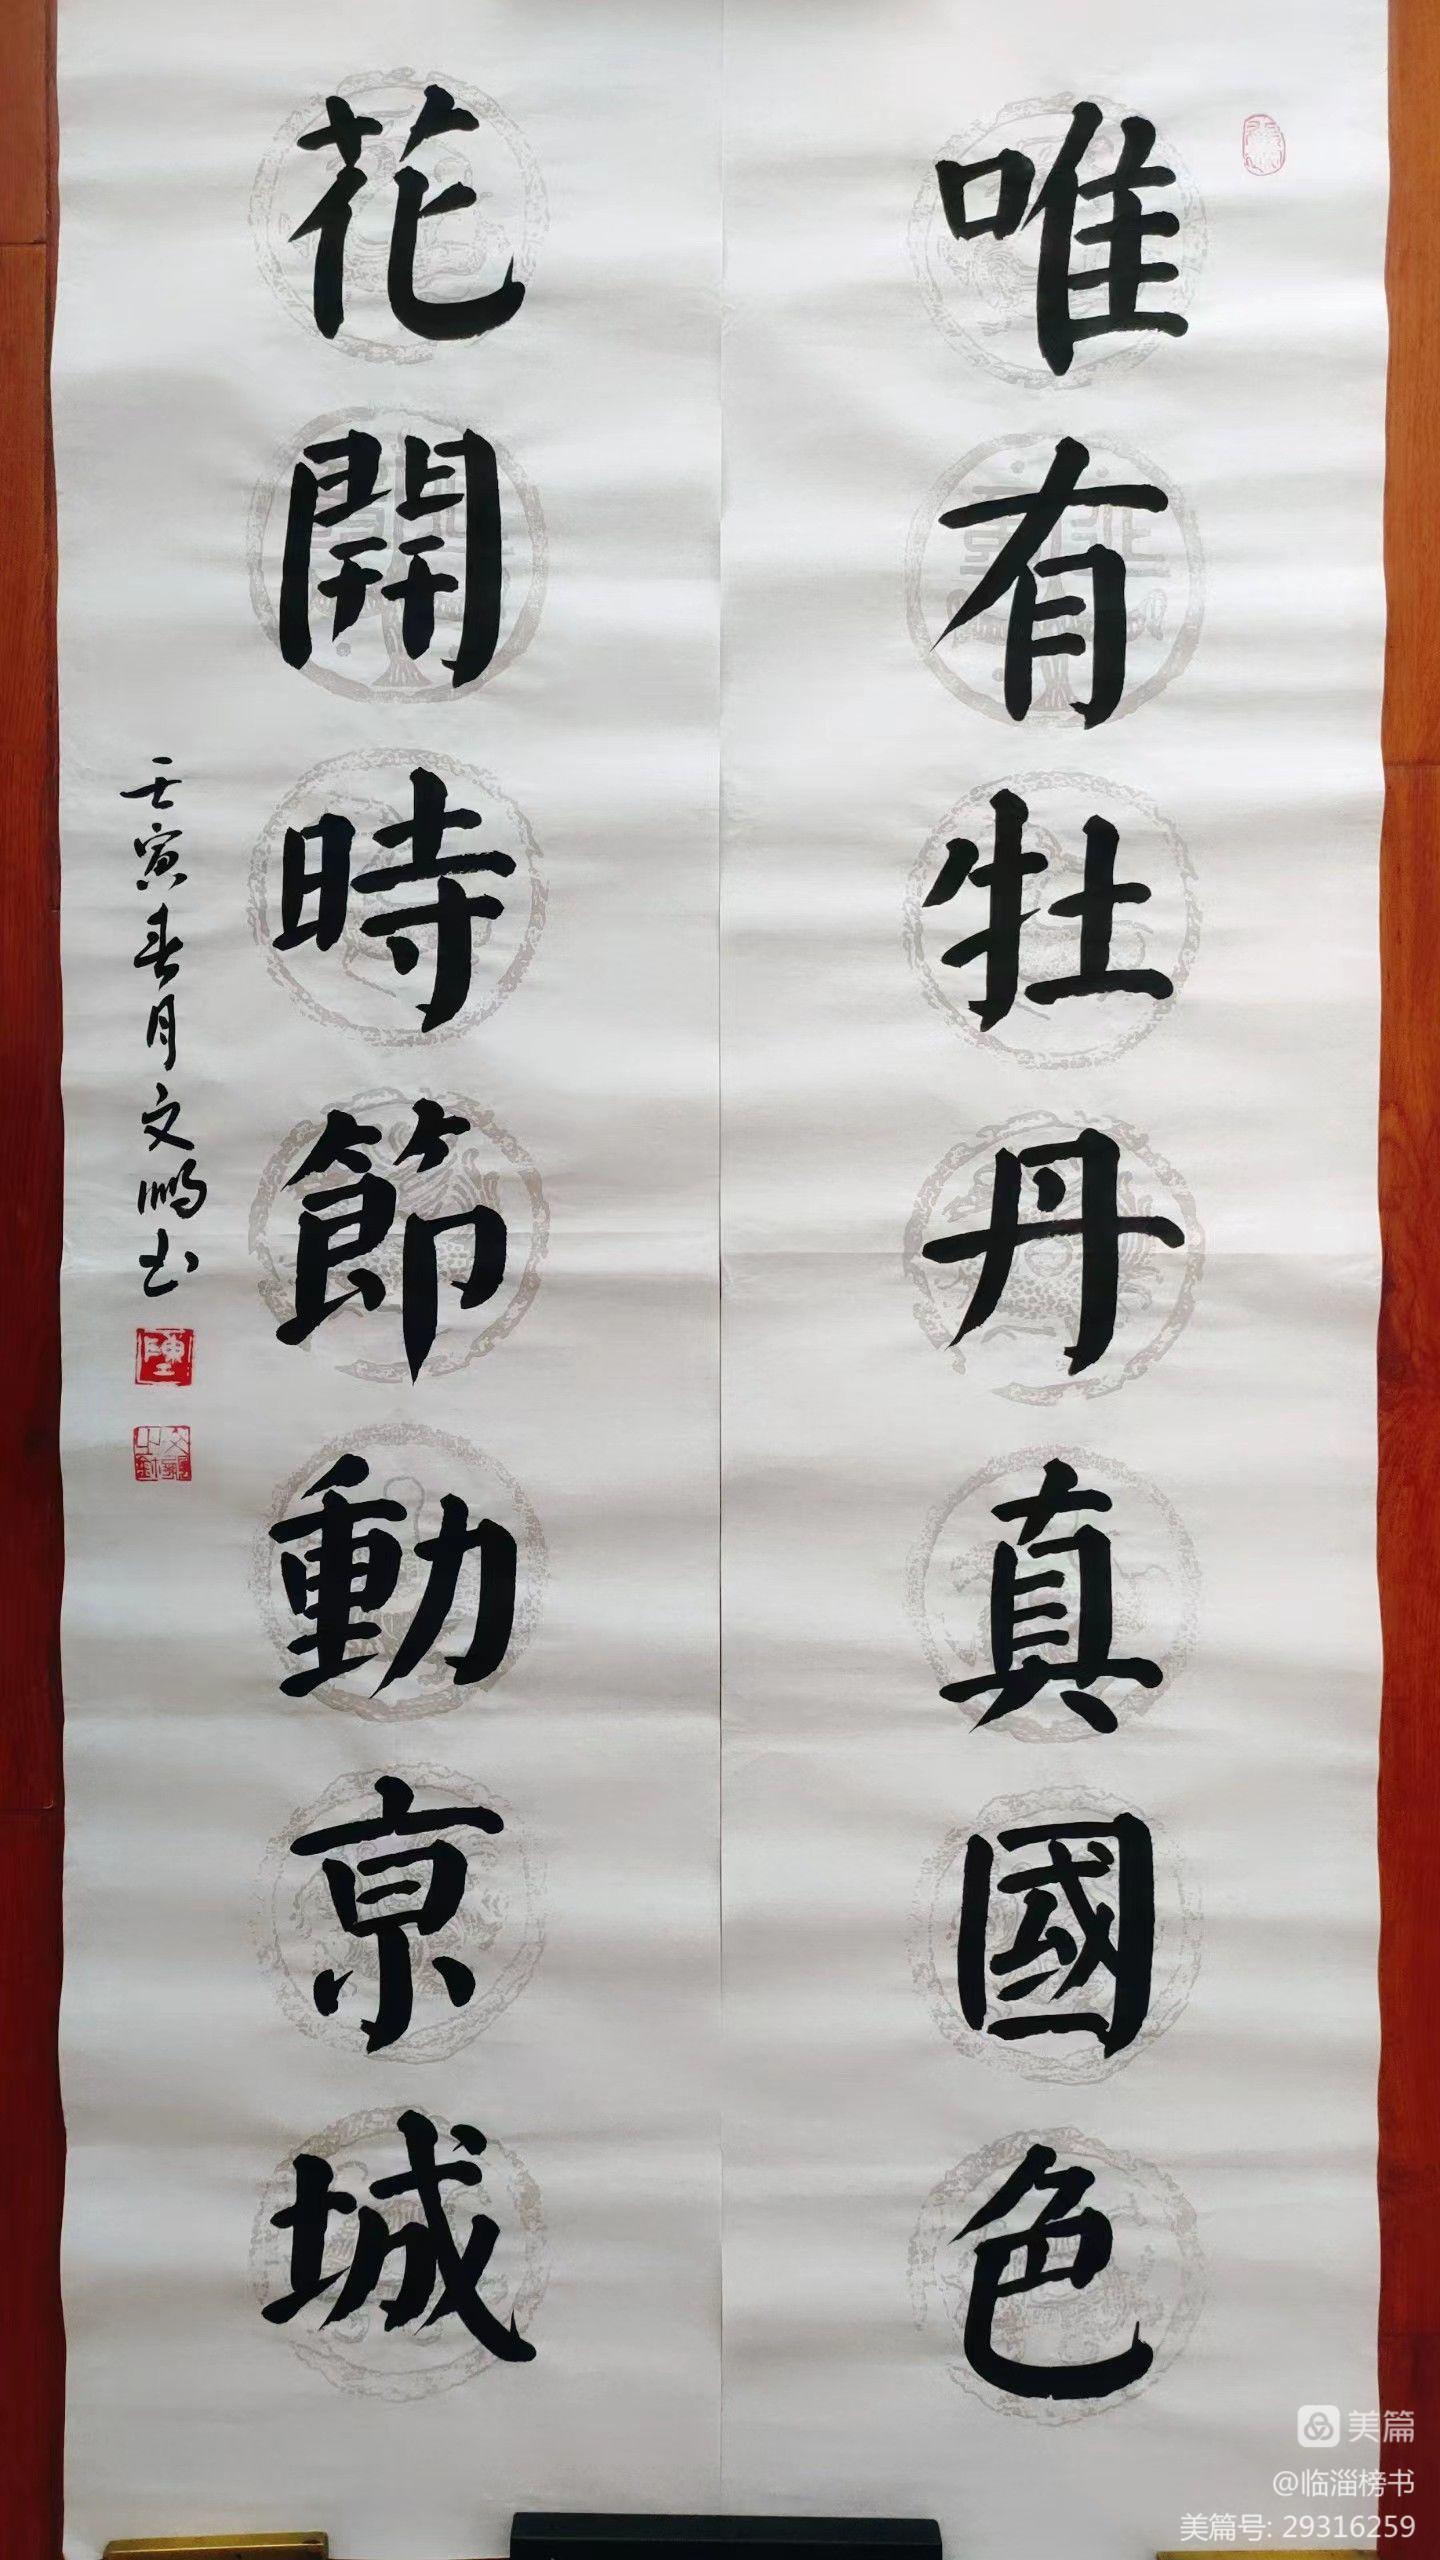 唯有牡丹真國色
花開時節動京城
壬寅春月文鹏书
陳
美篇
@临淄榜书
美篇号: 29316259